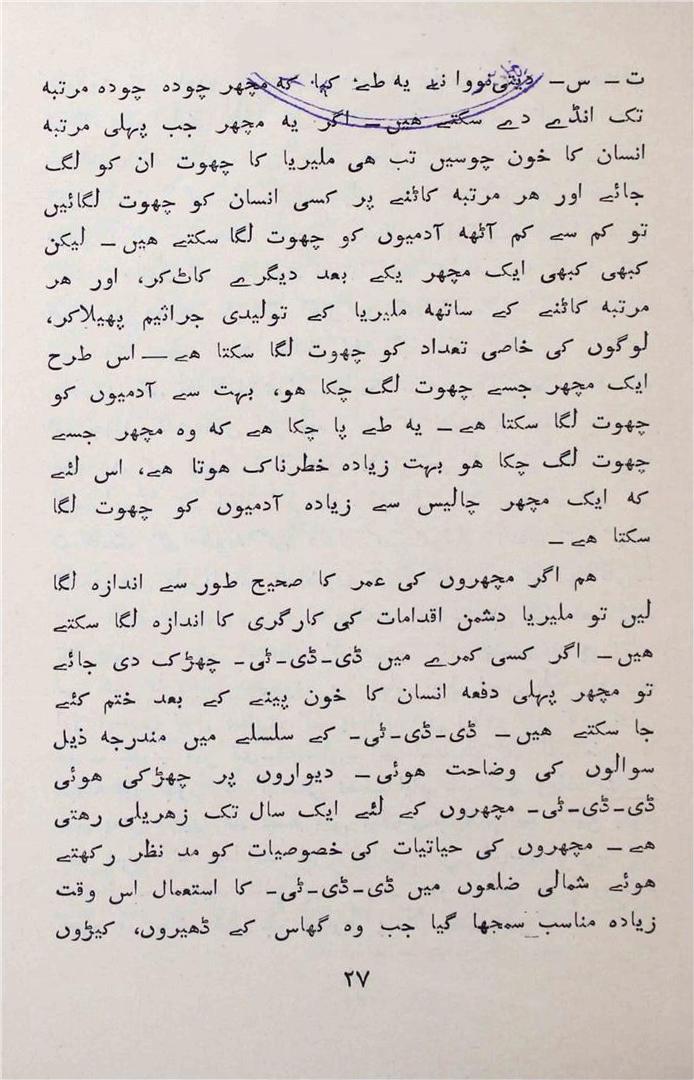 ت - س - دیتی نووا نے یہ طے کیا کہ مچھر چودہ چودہ مرتبہ
تک انڈے دے سکتے ھیں - اگر یہ مچھر جب پہلی مرتبہ
انسان کا خون چوسیں تب ھی ملیریا کا چھوت ان کو لگ
جائے اور ھر مرتبہ کاٹنے پر کسی انسان کو چھوت لگائیں
تو کم سے کم آٹھہ آدمیوں کو چھوت لگا سکتے ھیں - لیکن
کبھی کبھی ایک مچھر یکے بعد دیگرے کاٹ کر، اور ھر
مرتبہ کاٹنے کے ساتھہ ملیریا کے تولیدی جراثیم پھیلاکر،
لوگوں کی خاصی تعداد کو چھوت لگا سکتا ھے — اس طرح
ایک مچھر جسے چھوت لگ چکا ھو، بہت سے آدمیوں کو
چھوت لگا سکتا ھے - یہ طے پا چکا ھے کہ وہ مچھر جسے
چھوت لگ چکا ھو بہت زیادہ خطرناک ھوتا ھے، اس لئے
کہ ایک مچھر چالیس سے زیادہ آدمیوں کو چھوت لگا
سکتا ھے -
ھم اگر مچھروں کی عمر کا صحیح طور سے اندازہ لگا
لیں تو ملیریا دشمن اقدامات کی کارگری کا اندازہ لگا سکتے
ھیں - اگر کسی کمرے میں ڈی-ڈی-ٹی- چھڑک دی جائے
تو مچھر پہلی دفعہ انسان کا خون پینے کے بعد ختم کئے
جا سکتے ھیں - ڈی-ڈی-ٹی- کے سلسلے میں مندرجہ ذیل
سوالوں کی وضاحت ھوئی - دیواروں پر چھڑکی ھوئی
ڈی-ڈی-ٹی- مچھروں کے لئے ایک سال تک زھریلی رھتی
ھے - مچھروں کی حیاتیات کی خصوصیات کو مد نظر رکھتے
ھوئے شمالی ضلعوں میں ڈی-ڈی-ٹی- کا استعمال اس وقت
زیادہ مناسب سمجھا گیا جب وہ گھاس کے ڈھیروں، کیڑوں
۲۷